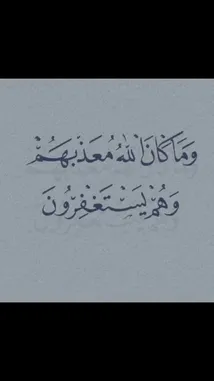 وَمَا كَانَ اللَّهُ مُعَذِّبَهُمْ
وَهُمْ يَسْتَغْفِرُونَ